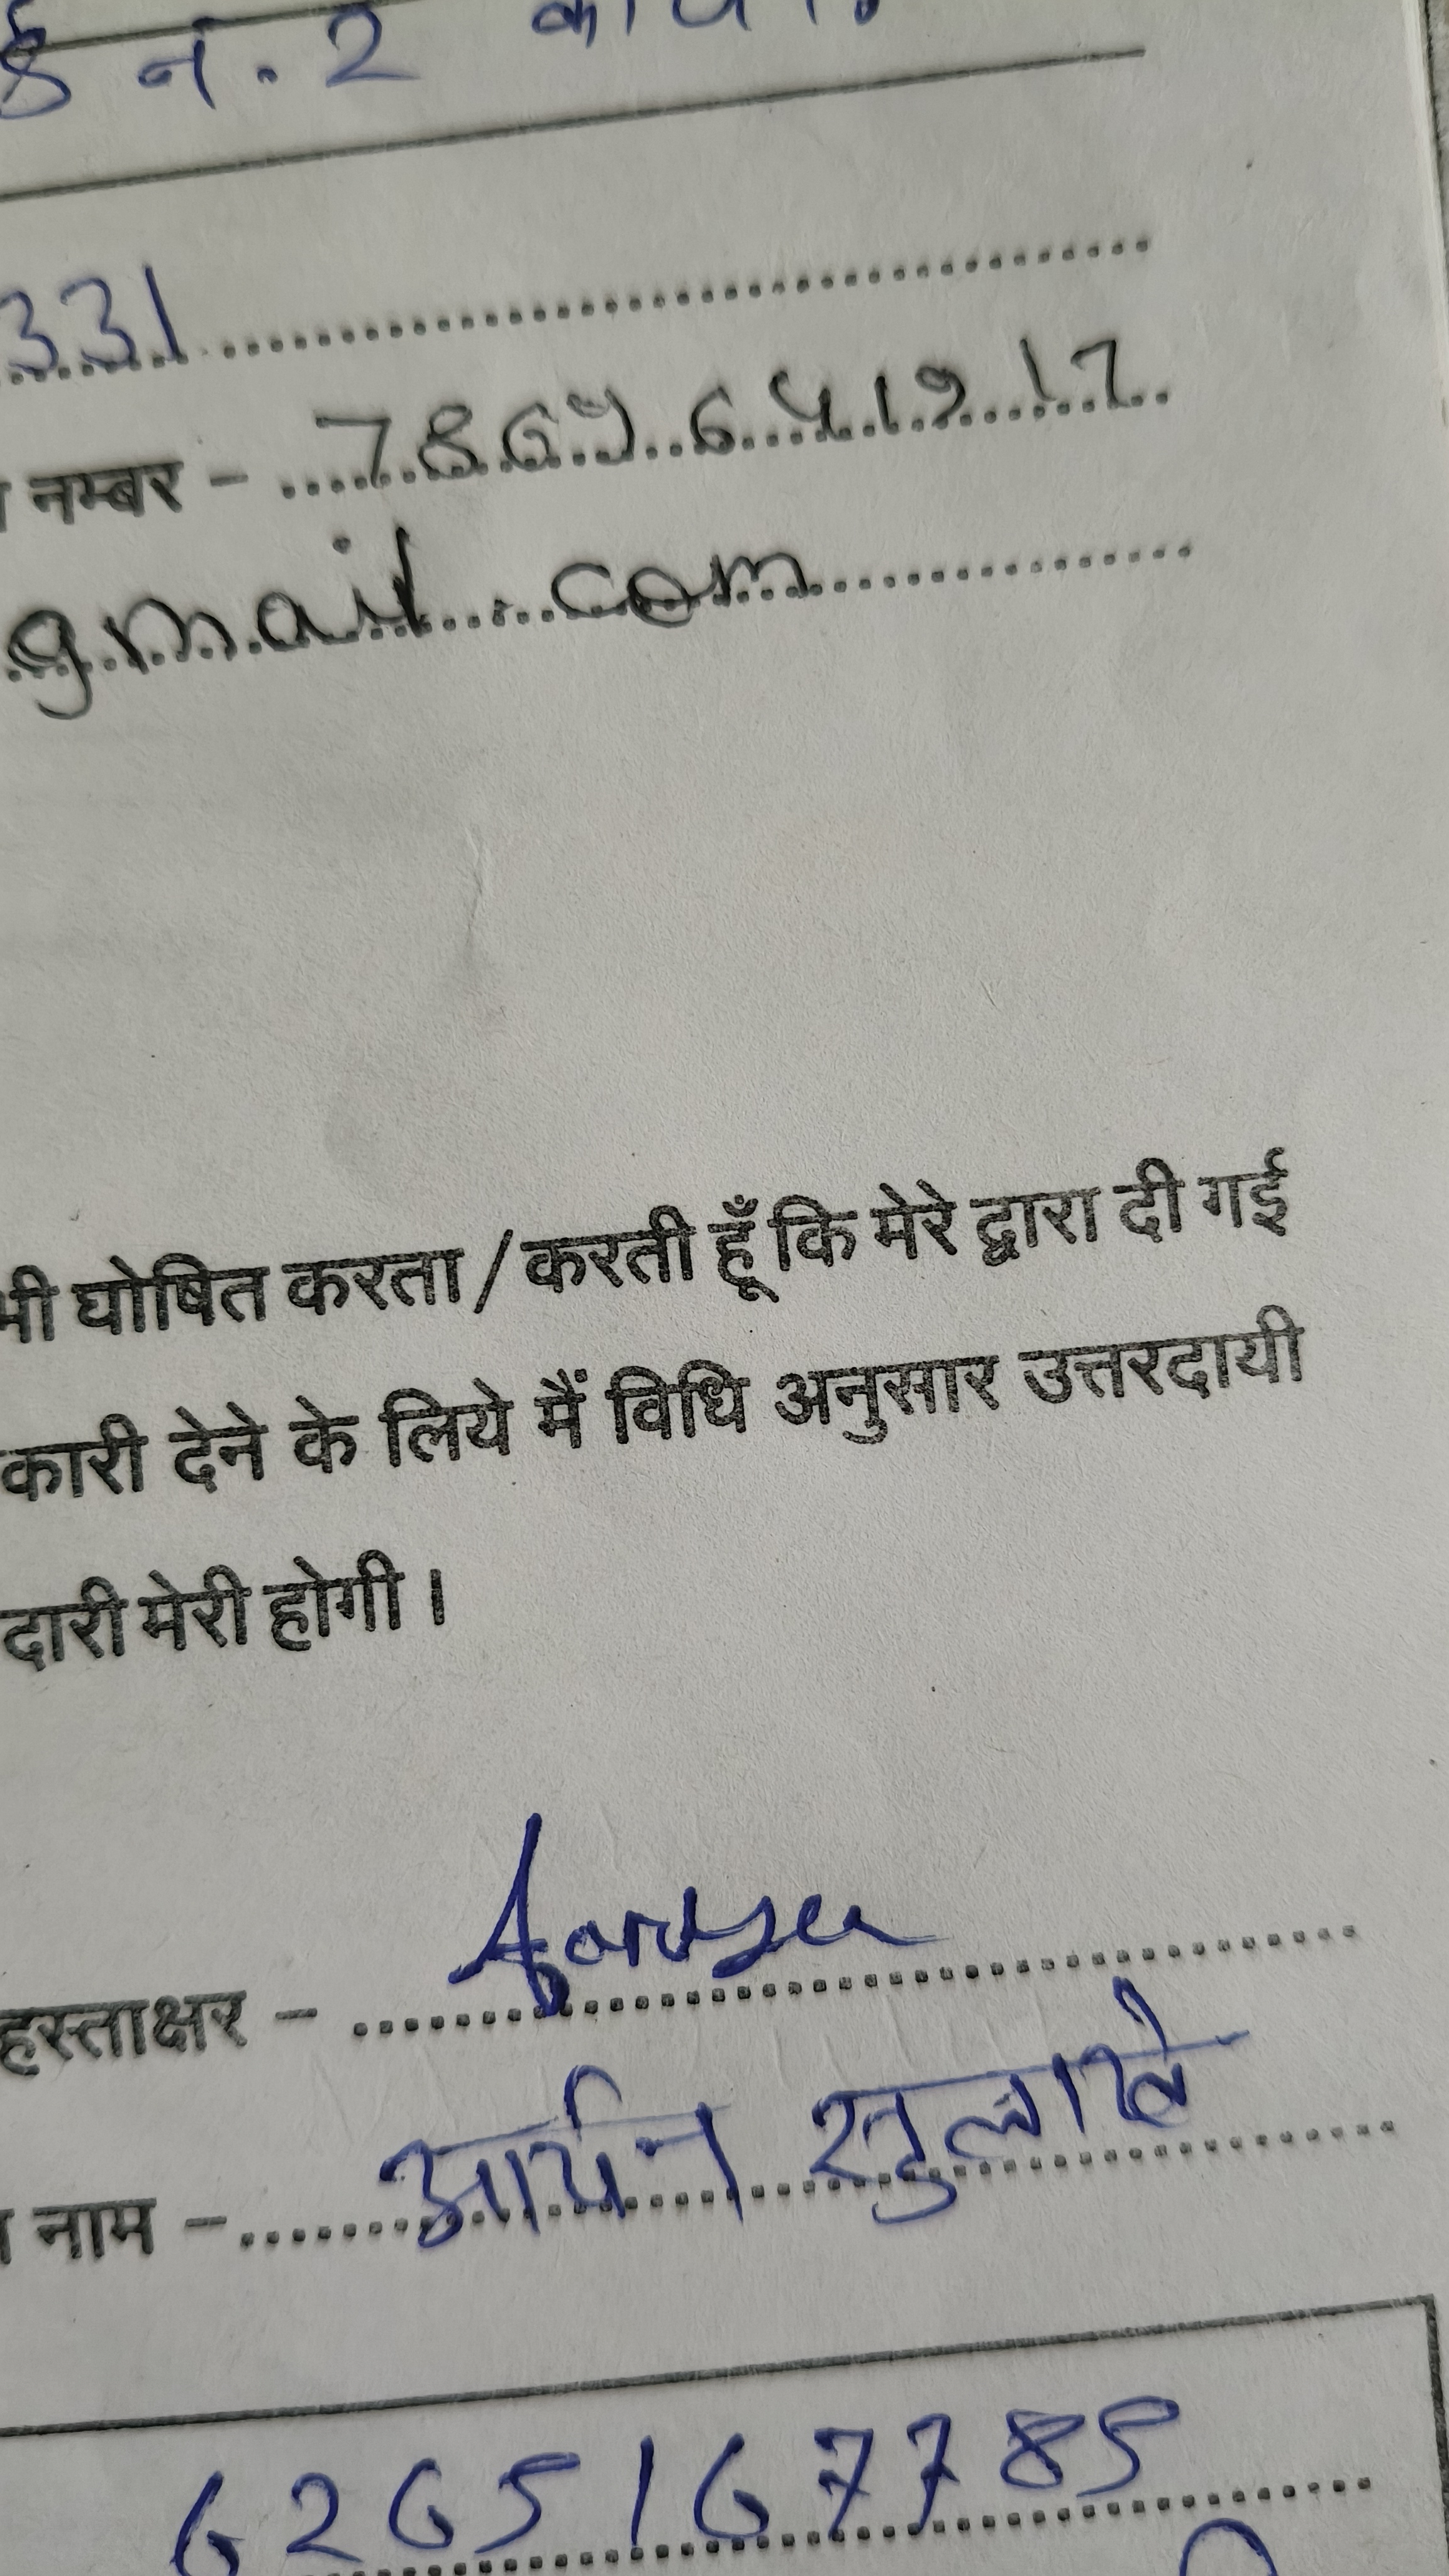 नं. 2
331
नम्बर - 7869641917
gmail.com
भी घोषित करता / करती हूँ कि मेरे द्वारा दी गई
कारी देने के लिये मैं विधि अनुसार उत्तरदायी
दारी मेरी होगी ।
हस्ताक्षर -
नाम - आर्यन खुलाखे
6265167785